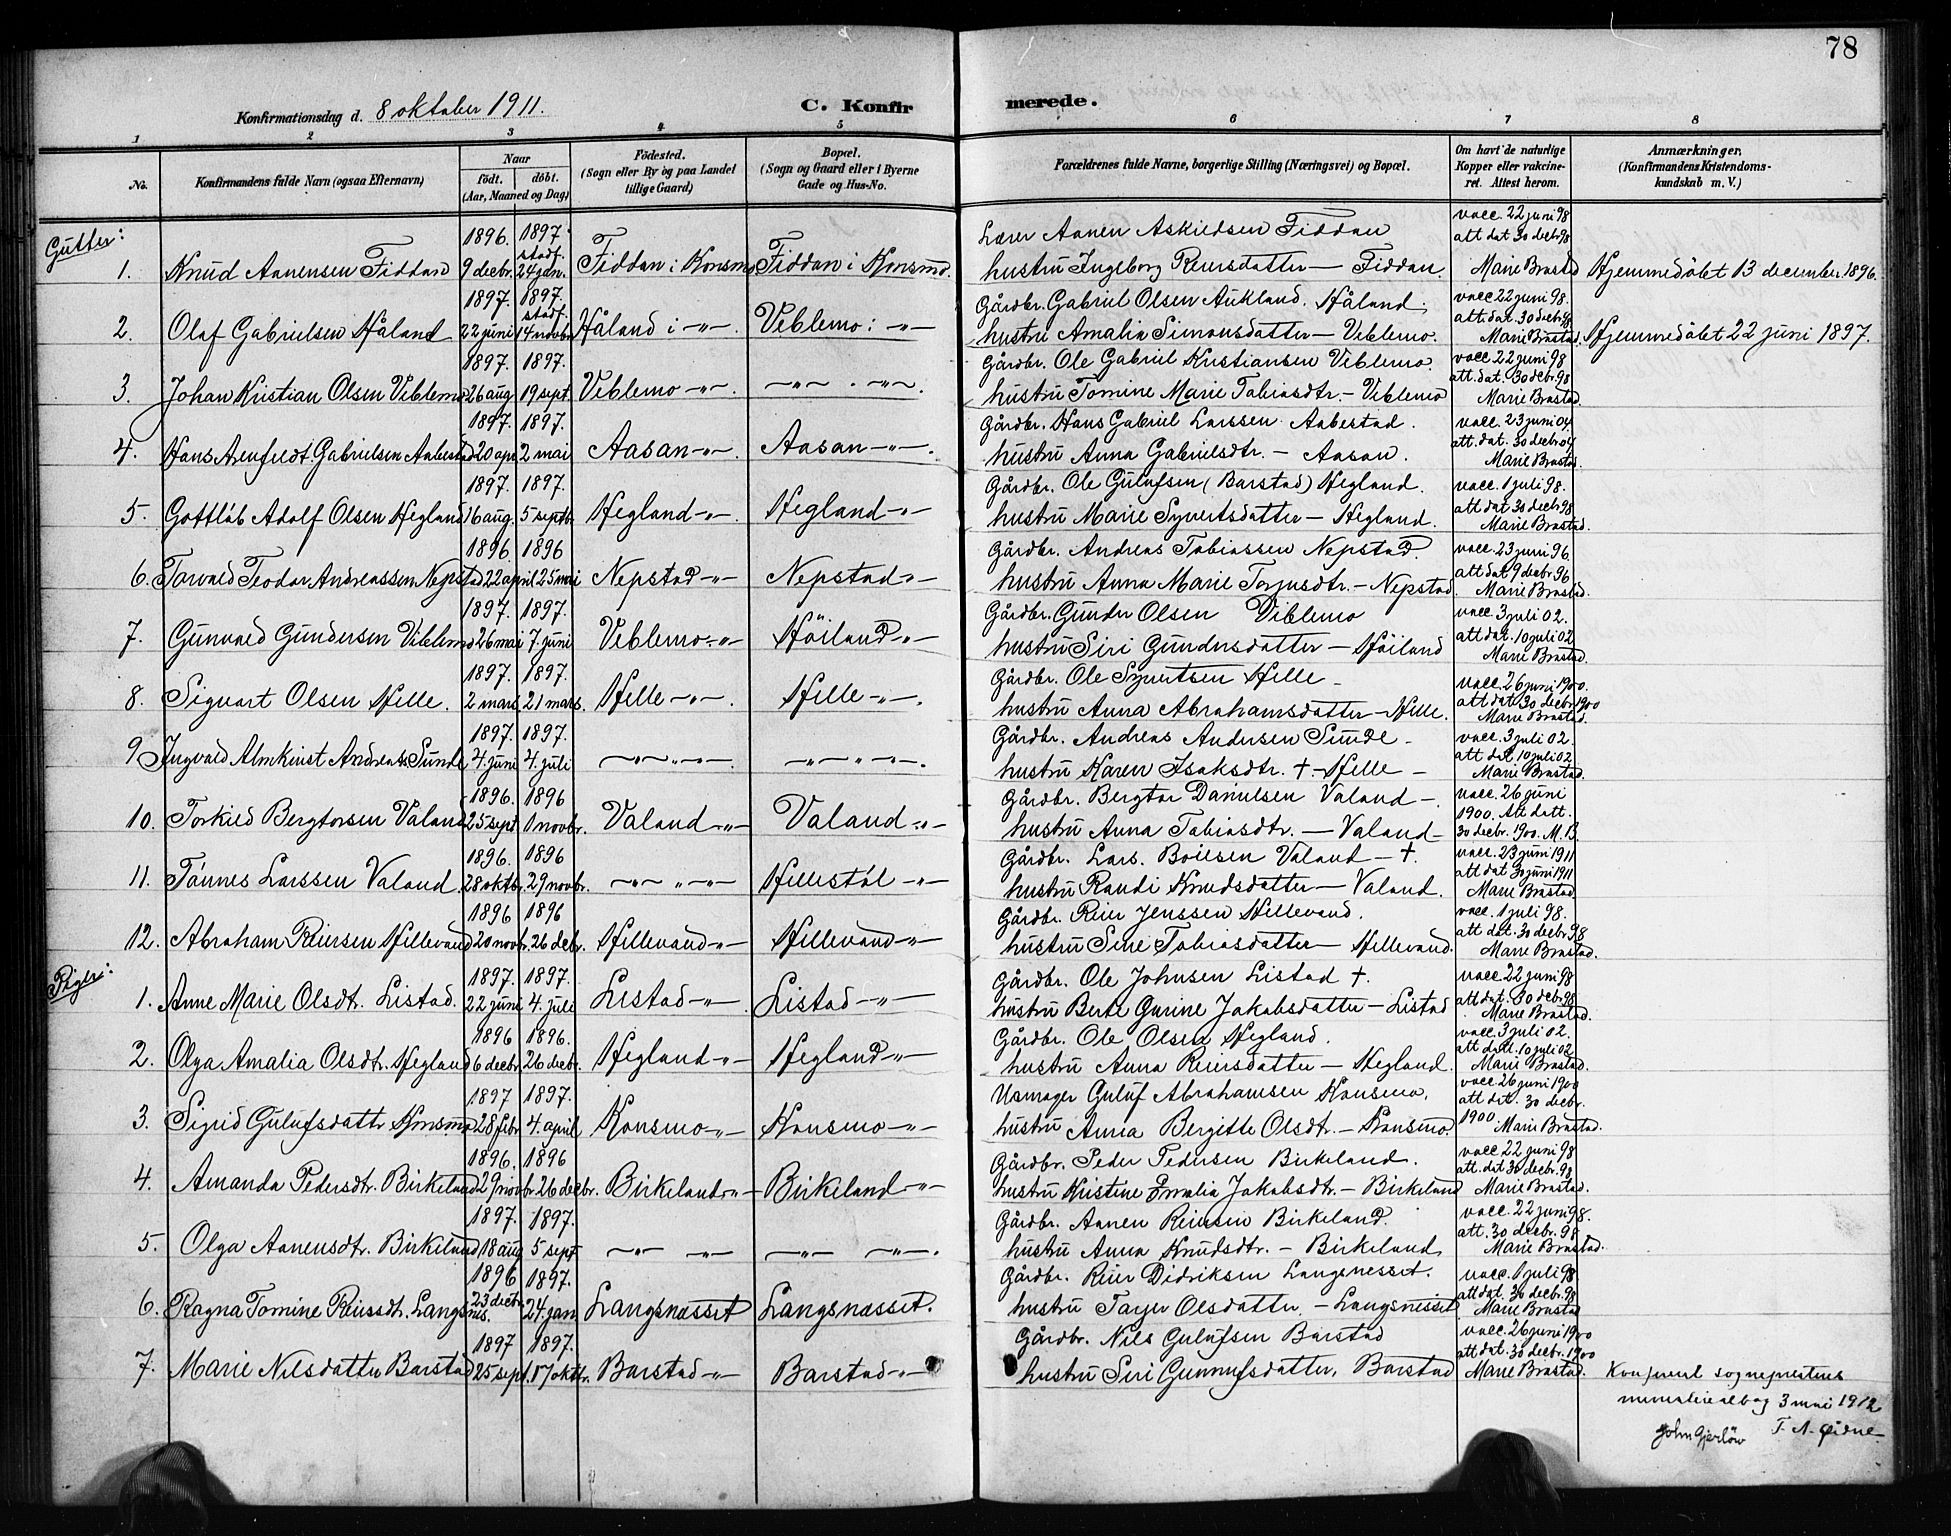 78
Konfirmationsdag d. 8 oktober 1911.
C. Konfirmerede.
1 2 3 4 5 6 7 8
No.
Konfirmandens fulde Navn (ogsaa Efternavn)
Naar
født. døbt.
(Aar, Maaned og Dag)
Fødested.
(Sogn eller By og paa Landet
tillige Gaard)
Bopæl.
(Sogn og Gaard eller i Byerne
Gade og Hus-No.
Forældrenes fulde Navne, borgerlige Stilling (Næringsvei) og Bopæl.
Om havt de naturlige
Kopper eller vakcine-
ret. Attest herom.
Anmærkninger,
(Konfirmandens Kristendoms-
kundskab m. V.)
Gutter:
1896. 1897 Lærer Aanen Askildsen Fiddan vacc. 22 juni 98
stadf. att dat 30 decbr 98
1. Knud Aanensen Fiddan 9 decbr. 24 jan. Fiddan i Konsmo Fiddan i Konsmo. hustru Ingeborg Reiersdatter — Fiddan. Marie Brastad Hjemmedøbt 13 december 1896.
1897. 1897. Gårdbr. Gabriel Olsen Aukland. Håland. vacc 22 juni 98.
stadf. att. dat. 30 decbr 98
2. Olaf Gabrielsen Håland 22 juni 14 novbr Håland i -"- Veblemo i -"- hustru Amalia Simonsdatter — Veblemo. Marie Brastad. Hjemmedøbt 22 juni 1897.
1897. 1897. Gårdbr. Ole Gabriel Kristiansen Veblemo. vacc 22 juni 98
att. dat. 30 decbr. 98
3. Johan Kristian Olsen Veblemo 26 aug 19 sept. Veblemo -"- -"- . -"-. hustru Tomine Marie Tobiasdtr. — Veblemo Marie Brastad.
1897. 1897. Gårdbr. Hans Gabriel Larssen Aabestad. vacc. 23 juni 04.
att. dat. 30 decbr 04
4. Hans Arenfeldt Gabrielsen Aabestad 20 apr 2 mai Aasan -"-. Aasan -"-. hustru Anna Gabrielsdtr. — Aasan. Marie Brastad.
1897. 1897. Gårdbr. Ole Gulufsen (Barstad) Hegland. vacc. 1 juli 98.
att dat 30 decbr 98
5. Gottlob Adolf Olsen Hegland 16 aug. 5 septbr. Hegland -"-. Hegland -"- hustru Marie Syvertsdatter — Hegland. Marie Brastad.
1896 1896 Gårdbr. Andreas Tobiassen Nepstad. vacc. 23 juni 96.
att dat 9 decbr. 96
6. Torvald Teodor Andreassen Nepstad 22 april 25 mai Nepstad -"- Nepstad -"- hustru Anna Marie Torjusdtr. — Nepstad. Marie Brastad.
1897. 1897. Gårdbr. Gunder Olsen Viblemo vacc. 3 juli 02.
att dat. 10 juli 02
7. Gunvald Gundersen Viblemo 26 mai 7. juni Veblemo -"- Høiland -"- hustru Siri Gundersdatter — Høiland Marie Brastad.
1897. 1897. Gårdbr. Ole Syvertsen Hille — vacc. 26 juni 1900.
att dat. 30 decbr 1900
8. Sigvart Olsen Hille. 2 mars 21 mars. Hille -"-. Hille -"-. hustru Anna Abrahamsdatter — Hille. Marie Brastad.
1897. 1897. Gårdbr. Andreas Andersen Sunde — vacc. 3 juli 02.
att dat. 10 juli 02
9 Ingvald Almkvist Andreass. Sunde 4. juni 4. juli -"- . -"-. -"- . -"-. hustru Karen Isaksdtr. †. — Hille — Marie Brastad.
1896. 1896 Gårdbr. Bergtor Danielsen Valand —. vacc. 26 juni
1900. Att datt.
10. Torkild Bergtorsen Valand 25 sept. 1 novbr. Valand -"- Valand -"- hustru Anna Tobiasdtr. — Valand — 30 decbr. 1900. M.B.
1896. 1896 Gårdbr. Lars. Boiesen Valand — †. vacc. 23 juni 1911
att dat 30 juni 1911
11. Tønnes Larssen Valand. 28 oktbr. 29 novbr. -"- " -"- Hillestøl -"- hustru Randi Knudsdatter — Valand. Marie Brastad.
1896 1896 Gårdbr. Reier Jenssen Hillevand. vacc. 1 juli 98.
att dat. 30 decbr. 98
12. Abraham Reiersen Hillevand 20 novbr. 26 decbr. Hillevand -"- Hillevand -"- hustru Sine Tobiasdatter — Hillevand. Marie Brastad.
Piger:
1897. 1897. Gårdbr. Ole Johnsen Listad †. vacc. 22 juni 98
att dat. 30 decbr. 98
1. Anne Marie Olsdtr. Listad. 22 juni 4. juli Listad -"-. Listad -"- hustru Berte Gurine Jakobsdatter — Listad Marie Brastad.
1896 1896. Gårdbr. Ole Olsen Hegland. vacc. 3 juli 02.
att datt. 10 juli 02
2. Olga Amalia Olsdtr. Hegland 6 decbr. 26 decbr. Hegland -"- Hegland -"- hustru Anna Reiersdatter — Hegland. Marie Brastad.
1897 1897. Usmager Guluf Abrahamsen Konsmo. vacc 26 juni 1900
att dat. 30 decbr.
3. Sigrid Gulufsdattr Konsmo 28 febr 4. april Konsmo -"- Konsmo -"- hustru Anna Bergitte Olsdtr. — Konsmo. 1900 Marie Brastad.
1896. 1896 Gårdbr. Peder Pedersen Birkeland. vacc. 22 juni 98
att. dat 30 decbr. 98
4. Amanda Pedersdtr. Birkeland 29 novbr. 26 decbr. Birkeland -"- Birkeland -"- hustru Kristine Emalia Jakobsdtr. — Birkeland Marie Brastad.
1897. 1897. Gårdbr. Aanen Reiersen Birkeland. vacc. 22 juni 98.
att. 30 decbr. 98
5. Olga Aanensdtr. Birkeland 18 aug 5 sept -"- -"- -"- -"-. hustru Anna Knudsdtr. — Birkeland Marie Brastad.
1896 1897. Gårdbr. Reier Didriksen Langsnesset. vacc. 1 juli 98
att dat. 30 decbr. 98
6. Ragna Tomine Reiersdtr. Langsnes. 23 decbr. 24. jan. Langsnæsset Langsnæsset. hustru Tarjer Olsdatter. — Langsnesset Marie Brastad
1897 1897. Gårdbr. Nils Gulufsen Barstad vacc. 26 juni 1900
att dat. 30 decbr. 1900
7. Marie Nilsdatter Barstad 25 sept. 17 oktbr. Barstad -"- Barstad -"- hustru Siri Gunnufsdatter. Barstad Marie Brastad.
Konferert sogneprestens
ministerialbog 3 mai 1912
John Gjerløw T. A. Eidne